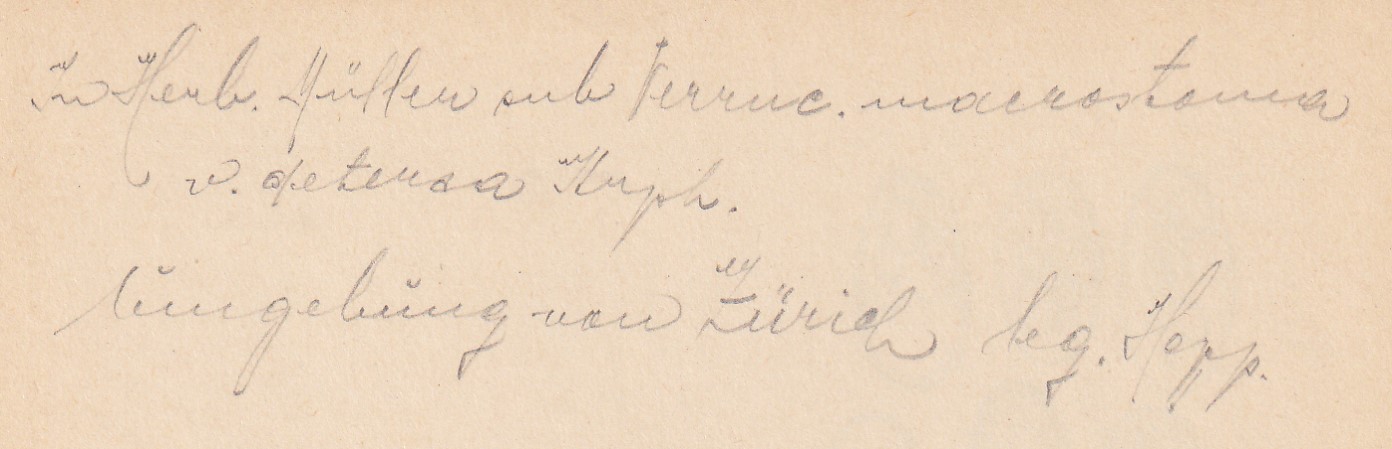 In Herb. Müller sub Verruc. macrostoma
v. detersa Krph.
Umgebung von Zürich leg. Hepp.